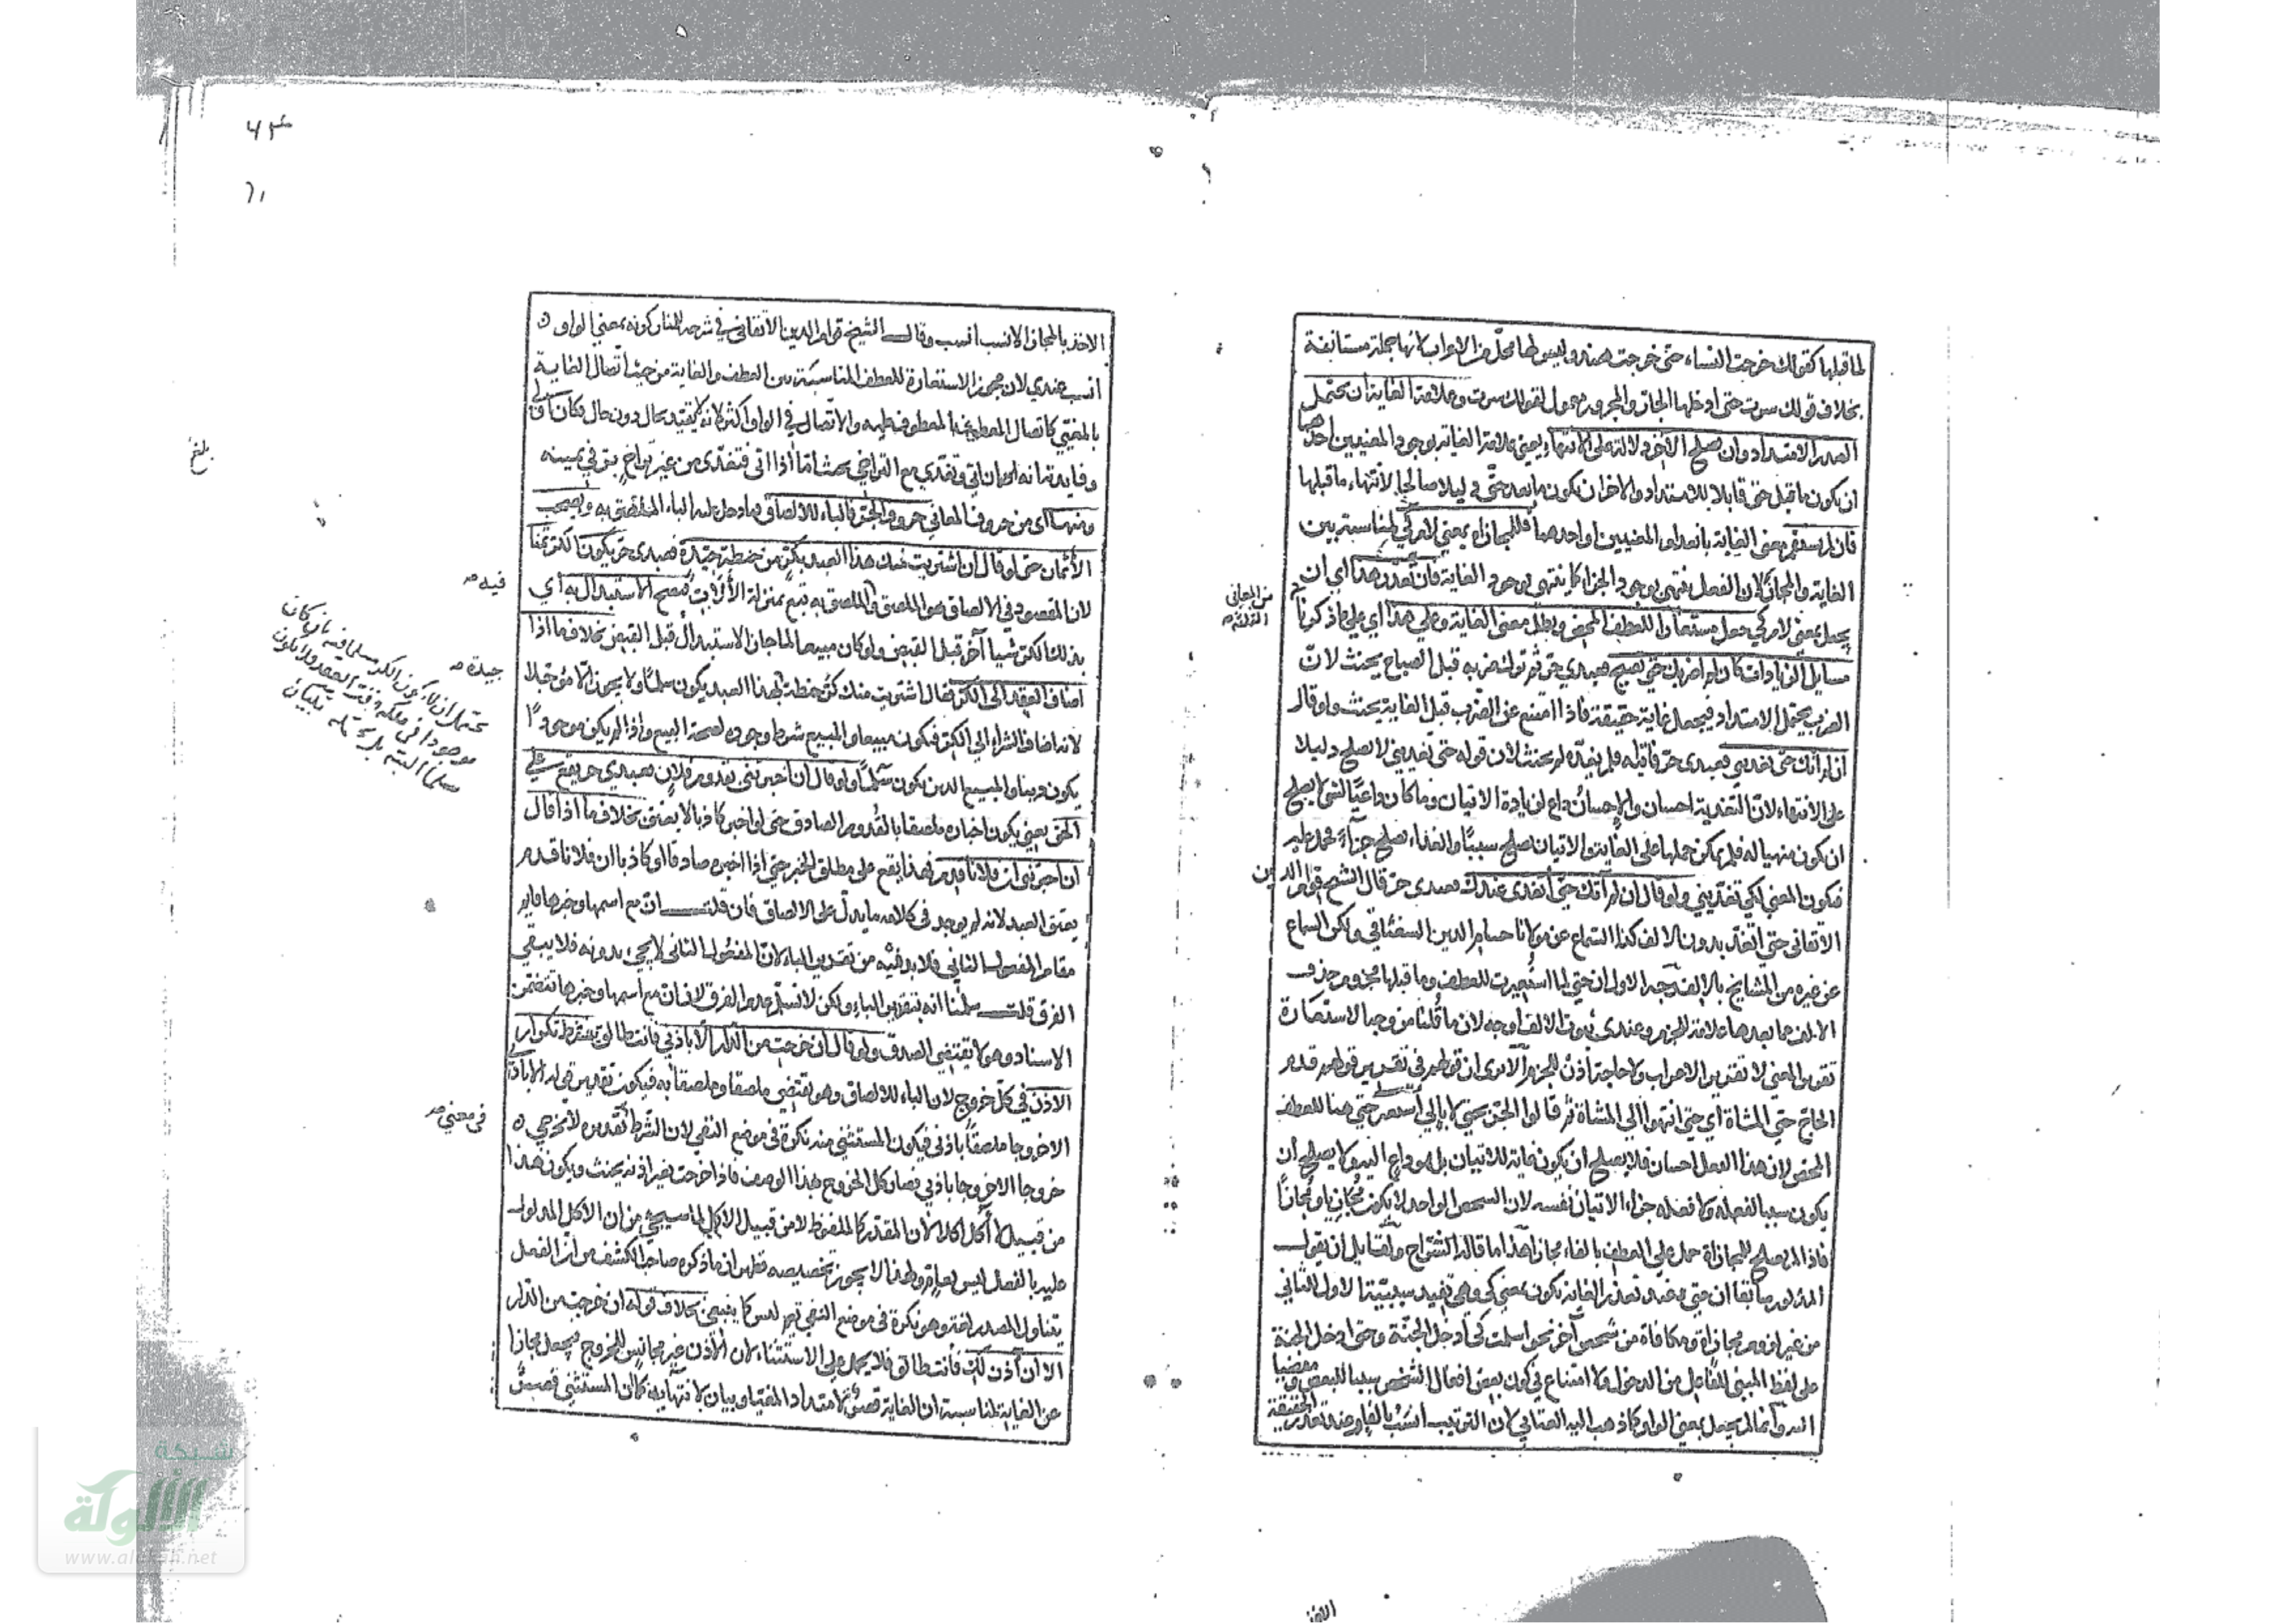 لما قبلها كقولك خرجت النساء حتى خرجت هند وليس لها محل من الاعراب لانها جملة مستانفة
بخلاف قولك سرت حتى ادخلها الجار والمجرور معمول لقولك سرت وعلامة الغاية ان يحتمل
الصدر الامتداد وان يصلح الآخر دلالة على الانتهاء يعني علامة الغاية بوجود المعنيين احدهما
ان يكون ما قبل حتى قابلا للامتداد والاخر ان يكون ما بعد حتى دليلا صالحا لانتهاء ما قبلها
فان لم يستقم معنى الغاية بانعدام المعنيين او احدهما فللمجازاة بمعنى لام كي لمناسبة بين
الغاية والمجازاة لان الفعل ينتهي بوجود الجزاء كما ينتهي بوجود الغاية فان تعذر هذا اي ان
يجعل بمعنى لام كي جعل مستعارا للعطف المحض وبطل معنى الغاية وعلى هذا اي على ما ذكرنا
من المعاني
الثلاثة صح
مسايل الزيادات كان لم اضربك حتى تصيح فعبدي حر ثم ترك ضربه قبل الصياح يحنث لان
الضرب يحتمل الامتداد فيجعل غاية حقيقة فاذا امتنع عن الضرب قبل الغاية يحنث ولو قال
ان لم اتك حتى تغديني فعبدي حر فاتاه فلم يغده لم يحنث لان قوله حتى تغديني لا يصلح دليلا
على الانتهاء لان التغدية احسان والاحسان داع لزيادة الاتيان وما كان داعيا لشئ لا يصلح
ان يكون منهيا له فلم يمكن حملها على الغاية والاتيان يصلح سببا والغداء يصلح جزاء فحمل عليه
فيكون المعنى لكي تغديني ولو قال ان لم آتك حتى اتغدى عندك فعبدي حر قال الشيخ قوام الدين
الاتقاني حتى اتغد بدون الالف كذا السماع عن مولانا حسام الدين السغناقي ولكن السماع
عن غيره من المشايخ بالالف وجه الاول ان حتى لما استعيرت للعطف وما قبلها مجزوم حذف
الالف مما بعدها علامة للجزم وعندي ثبوت الالف اوجه لان ما قلنا من وجه الاستعارة
تقدير المعنى لا تقدير الاعراب ولا حاجة اذن للجزم الا ترى ان قولهم في تقدير قولهم قدم
الحاج حتى المشاة اي حتى انتهوا الى المشاة ثم قالوا الجر بحتى لا بالى استعير حتى هنا للعطف
المحض لان هذا الفعل احسان فلا يصلح ان يكون غاية للاتيان بل هو داع اليه ولا يصلح ان
يكون سببا لفعله ولا فعله جزاء الاتيان نفسه لان الشخص الواحد لا يكون مجازيا ومجازا
فاذا لم يصلح للمجازاة حمل على العطف بالفاء مجازا هذا ما قاله الشراح ولقايل ان يقول
المذكور سابقا ان حتى عند تعذر الغاية تكون بمعنى كي وهي تفيد سببية الاول للثاني
من غير لزوم مجازاة ومكافاة من شخص آخر نحو اسلمت كي ادخل الجنة وحتى ادخل الجنة
على لفظ المبني للفاعل من الدخول ولا امتناع في كون بعض افعال الشخص سببا للبعض ومفضيا
اليه وانما لم يجعل بمعنى الواو كما ذهب اليه العتابي لان الترتيب انسب بالغاية وعند تعذر الحقيقة
الاخذ بالمجاز الانسب انسب وقال الشيخ قوام الدين الاتقاني في شرحه للمنار كونه بمعنى الواو
انسب عندي لان مجوز الاستعارة للعطف المناسبة بين العطف والغاية من حيث اتصال الغاية
بالمغيى كاتصال المعطوف بالمعطوف عليه والاتصال في الواو اكثر لانه لا يتقيد بحال دون حال فكان اولى
وفايدته انه لو اتى وتغدى مع التراخي يحنث اما اذا اتى فتغدى من غير تراخ بر في يمينه
ومنها اي من حروف المعاني حروف الجر فالباء للالصاق فما دخل عليه الباء الملصق به وتصحب
الأثمان حتى لو قال ان اشتريت منك هذا العبد بكر من حنطة جيدة فعبدي حر يكون الكر ثمنا
لان المقصود في الالصاق هو الملصق والملصق به تبع بمنزلة الآلات فيصح الاستبدال به اي
فيه صح
بذلك الكر شيأ آخر قبل القبض ولو كان مبيعا لما جاز الاستبدال قبل القبض بخلاف ما اذا
اضاف العقد الى الكر فقال اشتريت منك كر حنطة بهذا العبد يكون سلما ولا يجوز الا مؤجلا
جيدة صح
لانه اضاف الشراء الى الكر فيكون مبيعا والمبيع شرط وجوده لصحة البيع واذا لم يكن موجودا
يكون دينا والمبيع الدين يكون سلما ولو قال ان اخبرتني بقدوم فلان فعبدي حر يقع على
الحق يعني يكون اخباره ملصقا بالقدوم الصادق حتى لو اخبر كاذبا لا يعتق بخلاف ما اذا قال
ان اخبرتني ان فلانا قدم فهذا يقع على مطلق الخبر حتى اذا اخبره صادقا او كاذبا ان فلانا قدم
يعتق العبد لانه لم يوجد في كلامه ما يدل على الالصاق فان قلت ان مع اسمها وخبرها قايم
مقام المفعول الثاني فلا بد فيه من تقدير الباء لان المفعول الثاني لا يجئ بدونه فلا يبقى
الفرق قلت سلمنا انه بتقدير الباء ولكن لا نسلم عدم الفرق لان ان مع اسمها وخبرها تتضمن
الاسناد وهو لا يقتضي الصدق ولو قال ان خرجت من الدار الا باذني فانت طالق يشترط تكرار
الاذن في كل خروج لان الباء للالصاق وهو يقتضي ملصقا وملصقا به فيكون تقدير قوله الا باذني
الا خروجا ملصقا باذني فيكون المستثنى منه نكرة في موضع النفي لان الشرط تقديره لا تخرجي
في معنى صح
خروجا الا خروجا باذني فصار كل الخروج بهذا الوصف فاذا خرجت بغير اذنه يحنث ويكون هذا
من قبيل لا آكل اكلا لان المقدر كالملفوظ لا من قبيل لا آكل لما سيجئ من ان الاكل المدلول
عليه بالفعل ليس بعام ولهذا لا يجوز تخصيصه فظهر ان ما ذكره صاحب الكشف من ان الفعل
يتناول المصدر لغة وهو نكرة في موضع النفي فتعم ليس كما ينبغي بخلاف قوله ان خرجت من الدار
الا ان آذن لك فأنت طالق فلا يحمل على الاستثناء لان الاذن غير مجانس للخروج فيجعل مجازا
عن الغاية لمناسبة ان الغاية قصر لامتداد المغيا وبيان لانتهائه كما ان المستثنى قصر
بلغ
شبكة
الألوكة
www.alukah.net